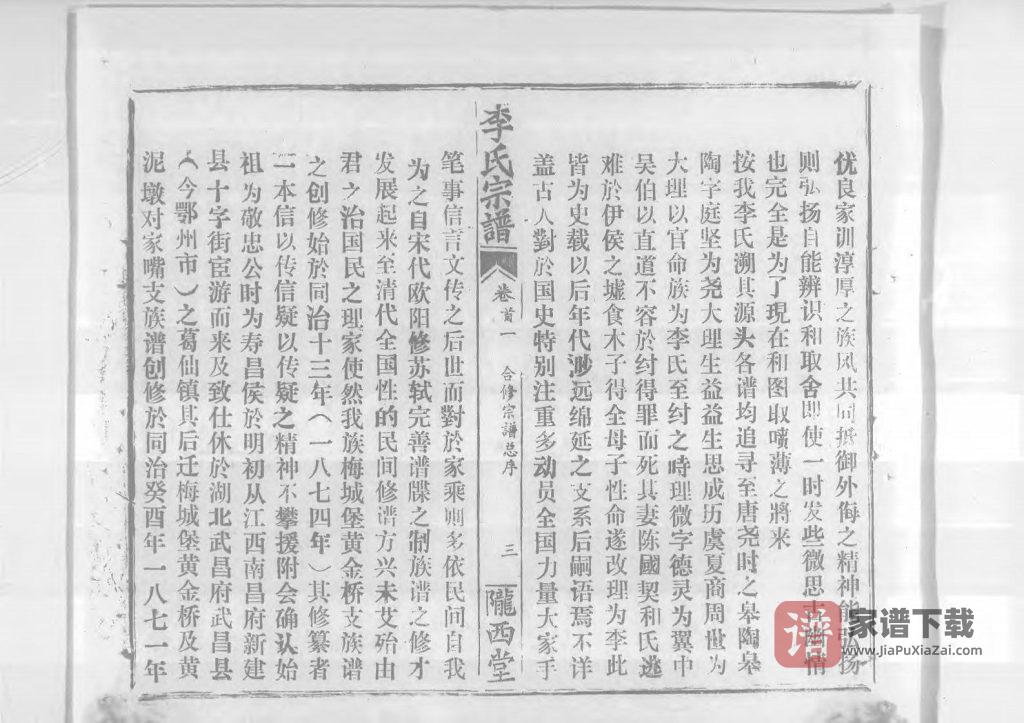 优良家训淳厚之族风共同抵御外侮之精神能弘扬
则弘扬自能辨识和取舍即使一时发些微思古幽情
也完全是为了現在和图取喷薄之將来
按我李氏溯其源头各谱均追寻至唐尧时之皋陶皋
陶字庭坚为尧大理生益益生思成历虞夏商周世为
大理以官命族为李氏至纣之時理微字德灵为翼中
吴伯以直道不容於纣得罪而死其妻陈國契和氏逃
难於伊侯之墟食木子得全母子性命遂改理为李此
皆为史载以后年代渺远绵延之支系后嗣语焉不详
盖古人對於国史特别注重多动员全国力量大家手
李氏宗譜
卷首一
合修宗譜总序
三
隴西堂
笔事信言文传之后世而對於家乘则多依民间自我
为之自宋代欧阳修苏轼完善谱牒之制族谱之修才
发展起来至清代全国性的民间修谱方兴未艾殆由
君之治国民之理家使然我族梅城堡黄金桥支族谱
之创修始於同治十三年（一八七四年）其修纂者
二本信以传信疑以传疑之精神不攀援附会确认始
祖为敬忠公时为寿昌侯於明初从江西南昌府新建
县十字街宦游而来及致仕休於湖北武昌府武昌县
（今鄂州市）之葛仙镇其后迁梅城堡黄金桥及黄
泥墩对家嘴支族谱创修於同治癸酉年一八七一年
谱
家谱下载
www.JiaPuXiaZai.com